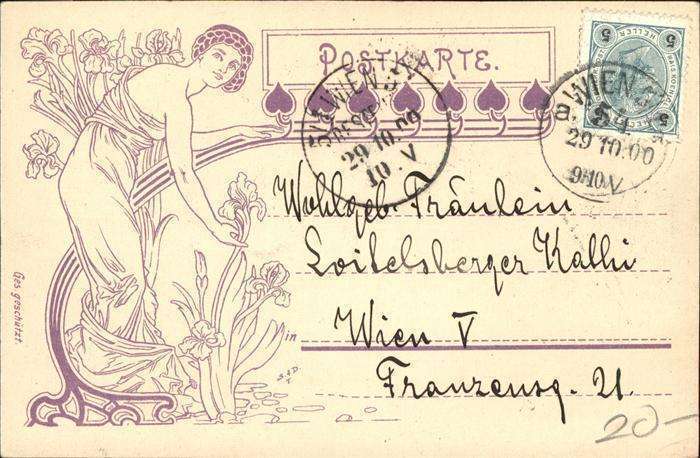 POSTKARTE.
WIEN
29 10.00
10.V
WIEN
29 10.00
9-10V
5 HELLER 5
Wohlgeb. Fräulein
Loitelsberger Kathi
in Wien V
Franzensg. 21.
Ges. geschützt.
20-